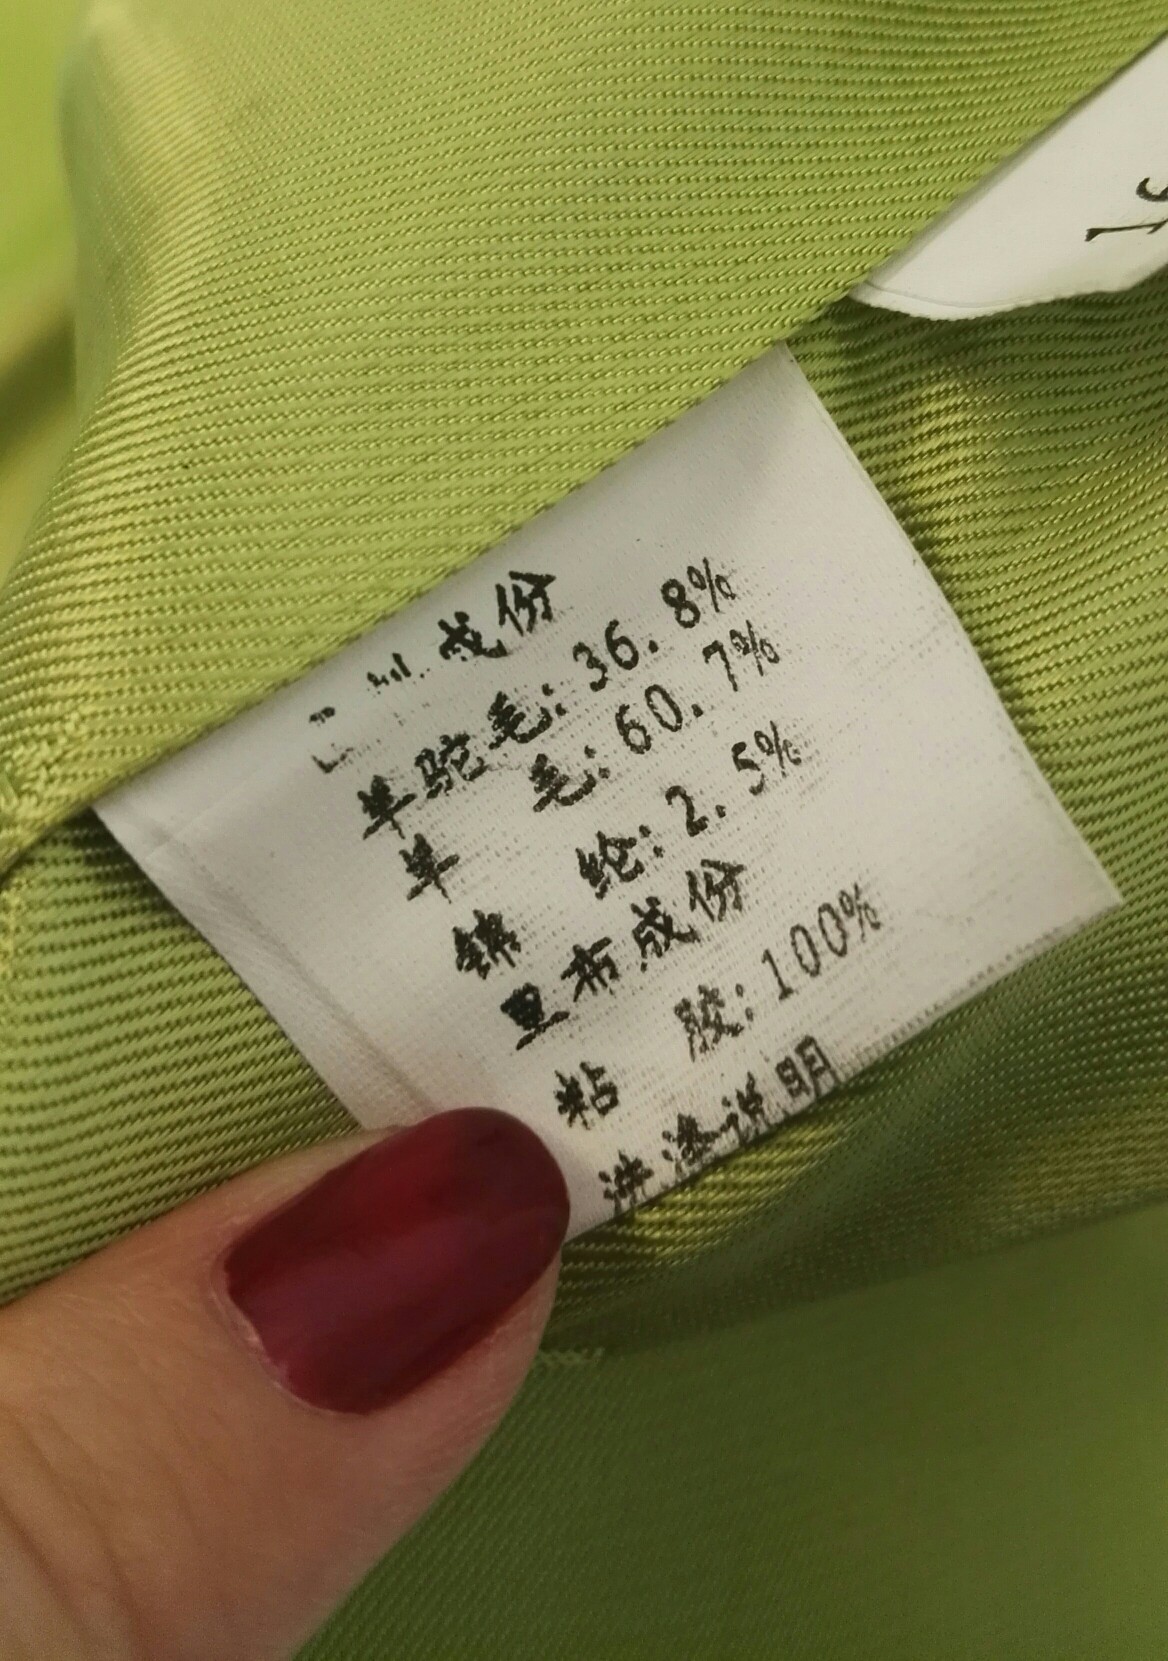 成份
羊驼毛:36.8%
羊 毛:60.7%
锦 纶:2.5%
里布成份
粘 胶:100%
洗涤说明